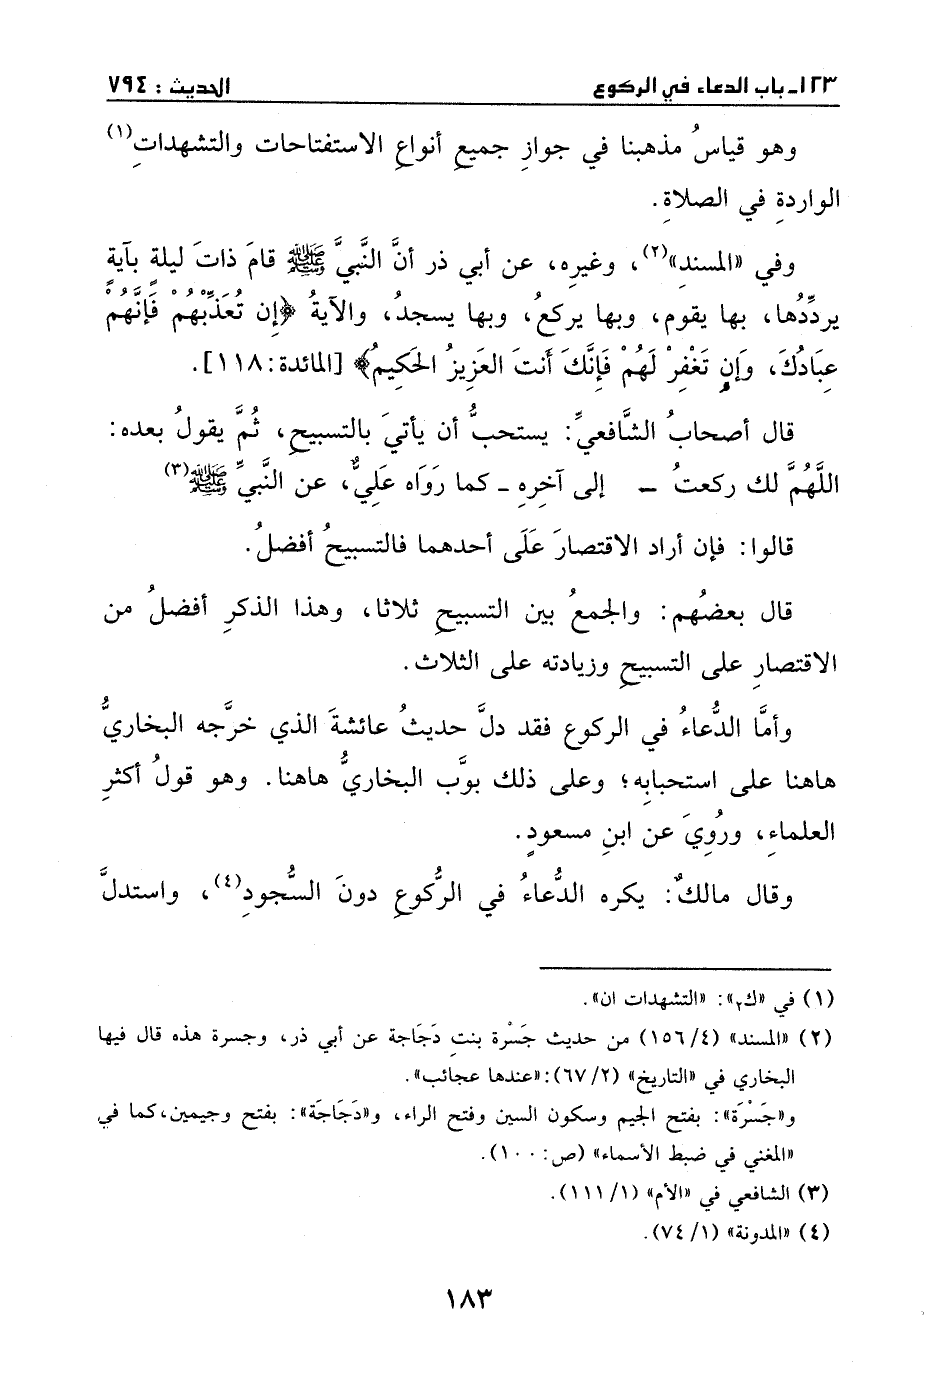 ١٢٣ـ باب الدعاء في الركوع
الحديث : ٧٩٤
وهو قياسُ مذهبنا في جوازِ جميعِ أنواعِ الاستفتاحات والتشهداتِ(١)
الواردةِ في الصلاةِ.
وفي «المسندِ»(٢)، وغيرِه، عن أبي ذر أنَّ النَّبيَّ ﷺ قامَ ذاتَ ليلةٍ بآيةٍ
يردِّدُها، بها يقوم، وبها يركعُ، وبها يسجدُ، والآيةُ ﴿إن تُعَذِّبْهُمْ فَإِنَّهُمْ
عِبَادُكَ، وَإِن تَغْفِرْ لَهُمْ فَإِنَّكَ أَنتَ العَزِيزُ الحَكِيمُ﴾ [المائدة:١١٨].
قال أصحابُ الشَّافعيِّ: يستحبُّ أن يأتيَ بالتسبيحِ، ثُمَّ يقولُ بعده:
اللَّهُمَّ لك ركعتُ ـ إلى آخِرِهِ ـ كما رَوَاه عَلِيٌّ، عن النَّبيِّ ﷺ(٣)
قالوا: فإن أراد الاقتصارَ عَلَى أحدهما فالتسبيحُ أفضلُ.
قال بعضُهم: والجمعُ بين التسبيحِ ثلاثا، وهذا الذكرِ أفضلُ من
الاقتصارِ على التسبيحِ وزيادته على الثلاث.
وأمَّا الدُّعاءُ في الركوع فقد دلَّ حديثُ عائشةَ الذي خرَّجه البخاريُّ
هاهنا على استحبابِه؛ وعلى ذلك بوَّب البخاريُّ هاهنا. وهو قولُ أكثرِ
العلماءِ، ورُوِيَ عن ابنِ مسعودٍ.
وقال مالكٌ: يكره الدُّعاءُ في الرُّكوعِ دونَ السُّجودِ(٤)، واستدلَّ
(١) في «ك٢»: «التشهدات ان».
(٢) «المسند» (٤/ ١٥٦) من حديث جَسْرة بنتِ دَجَاجة عن أبي ذر، وجسرة هذه قال فيها
البخاري في «التاريخ» (٢/ ٦٧):«عندها عجائب».
و«جَسْرَة»: بفتح الجيم وسكون السين وفتح الراء، و«دَجَاجَة»: بفتح وجيمين،كما في
«المغني في ضبط الأسماء» (ص: ١٠٠).
(٣) الشافعي في «الأم» (١/ ١١١).
(٤) «المدونة» (١/ ٧٤).
١٨٣